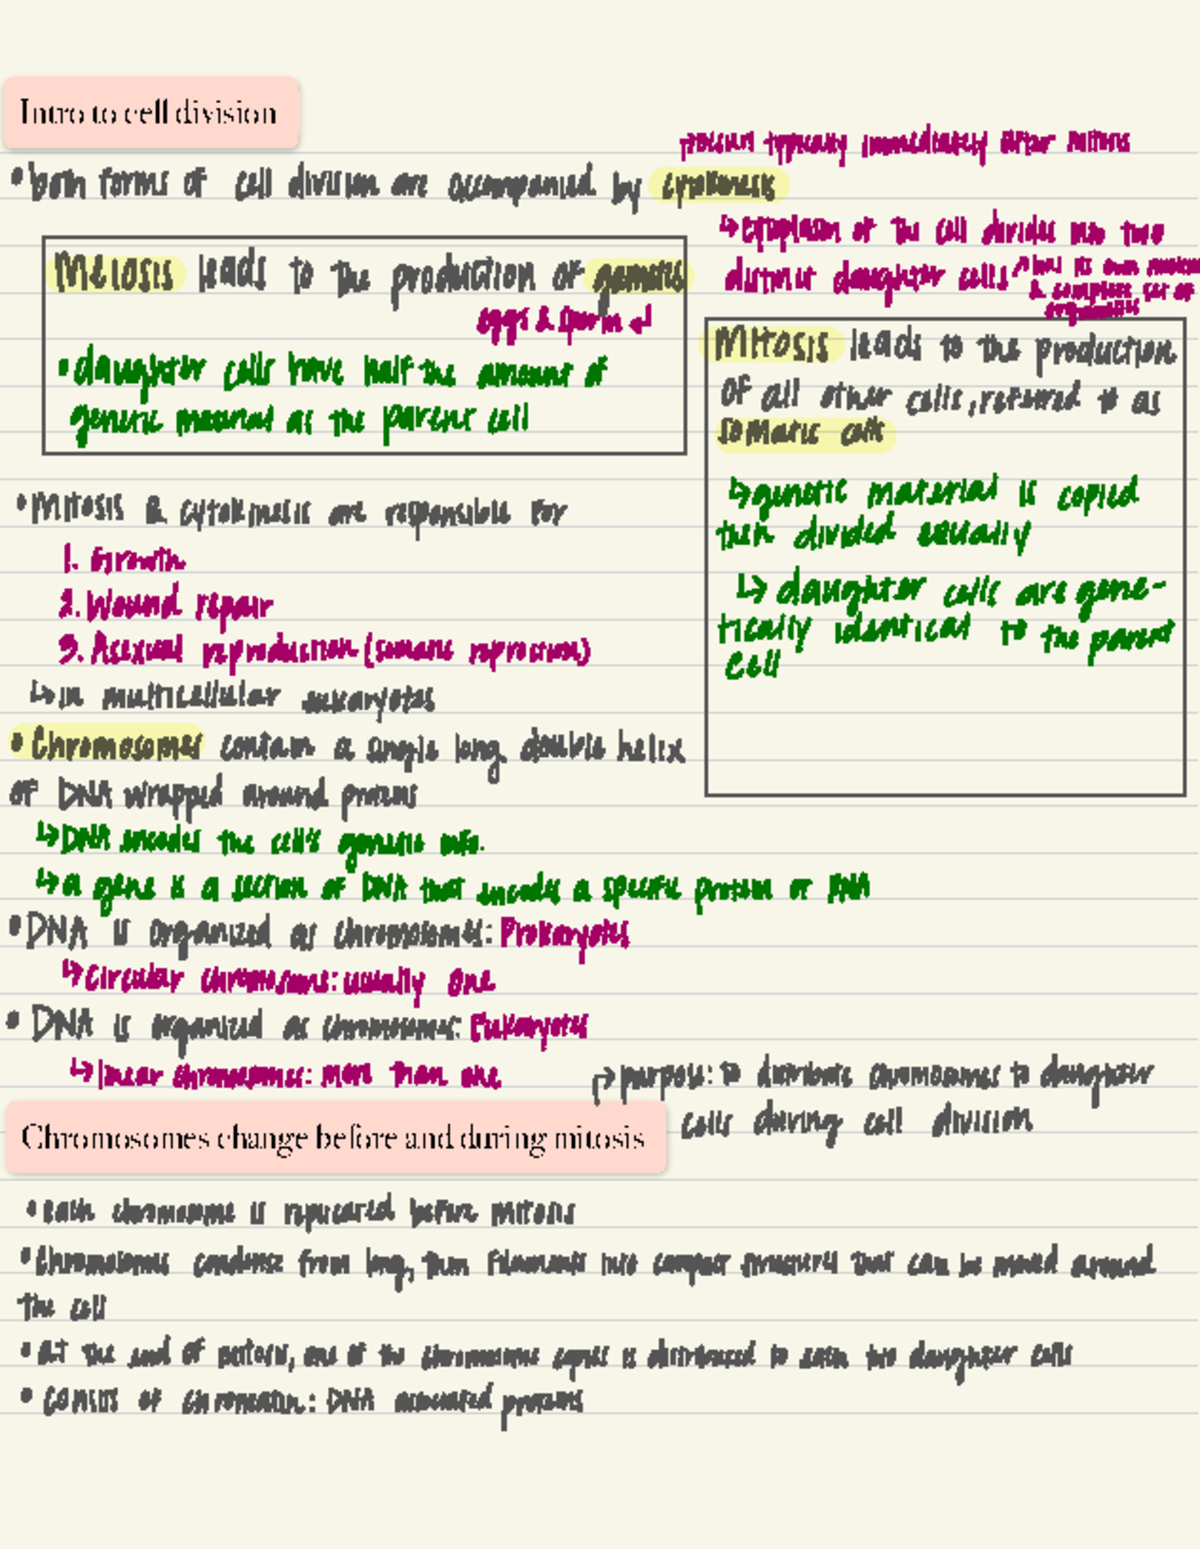 Intro to cell division
→occurs typically immediately after mitosis
• both forms of cell division are accompanied by cytokinesis
↳ cytoplasm of the cell divides into two
distinct daughter cells ↗ has its own nucleus
& complete set of
organelles
Meiosis leads to the production of gametes
eggs & sperm ↲
• daughter cells have half the amount of
genetic material as the parent cell
Mitosis leads to the production
of all other cells, referred to as
somatic cells
↳ genetic material is copied
then divided equally
↳ daughter cells are gene-
tically identical to the parent
cell
• Mitosis & cytokinesis are responsible for
1. Growth
2. Wound repair
3. Asexual reproduction (somatic
↳ in multicellular eukaryotes
• Chromosomes contain a single long double helix
of DNA wrapped around proteins
↳ DNA encodes the cell's genetic info.
↳ a gene is a section of DNA that encodes a specific protein or RNA
• DNA is organized as chromosomes: Prokaryotes
↳ circular chromosome: usually one
• DNA is organized as chromosomes: Eukaryotes
↳ linear chromosomes: more than one
→ purpose: to distribute chromosomes to daughter
cells during cell division
Chromosomes change before and during mitosis
• each chromosome is replicated before mitosis
• Chromosomes condense from long, thin filaments into compact structures that can be moved around
the cell
• at the end of one of the chromosome copies is distributed to each two daughter cells
• of chromatin: DNA associated proteins